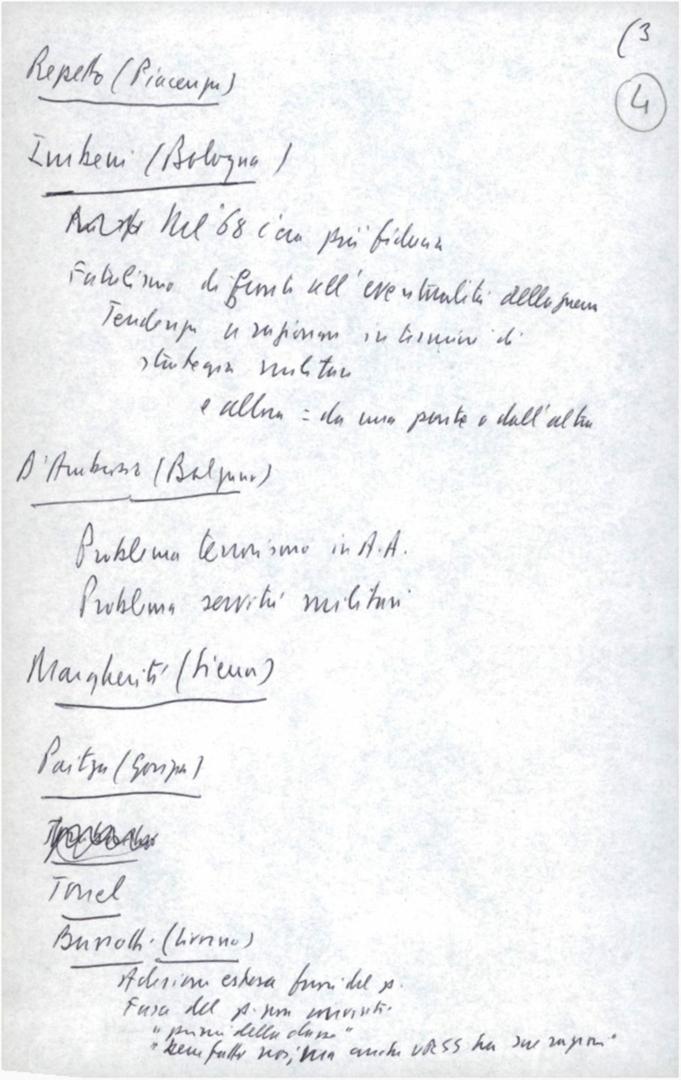 (3
4
Repetto (Piacenza)
Imbeni (Bologna)
Nel '68 c'era più fiducia
Fatalismo di fronte all'eventualità della guerra
Tendenza a ragionare in termini di
strategia militare
e allora = da una parte o dall'altra
D'Ambrosio (Bolzano)
Problema terrorismo in A.A.
Problema servitù militari
Margheriti (Siena)
(Gorizia)
Tonel
(Livorno)
Adesione estesa fuori del p.
Fasce del p. non
"primi della classe"
"bene fatto noi, ma anche URSS ha sue ragioni"